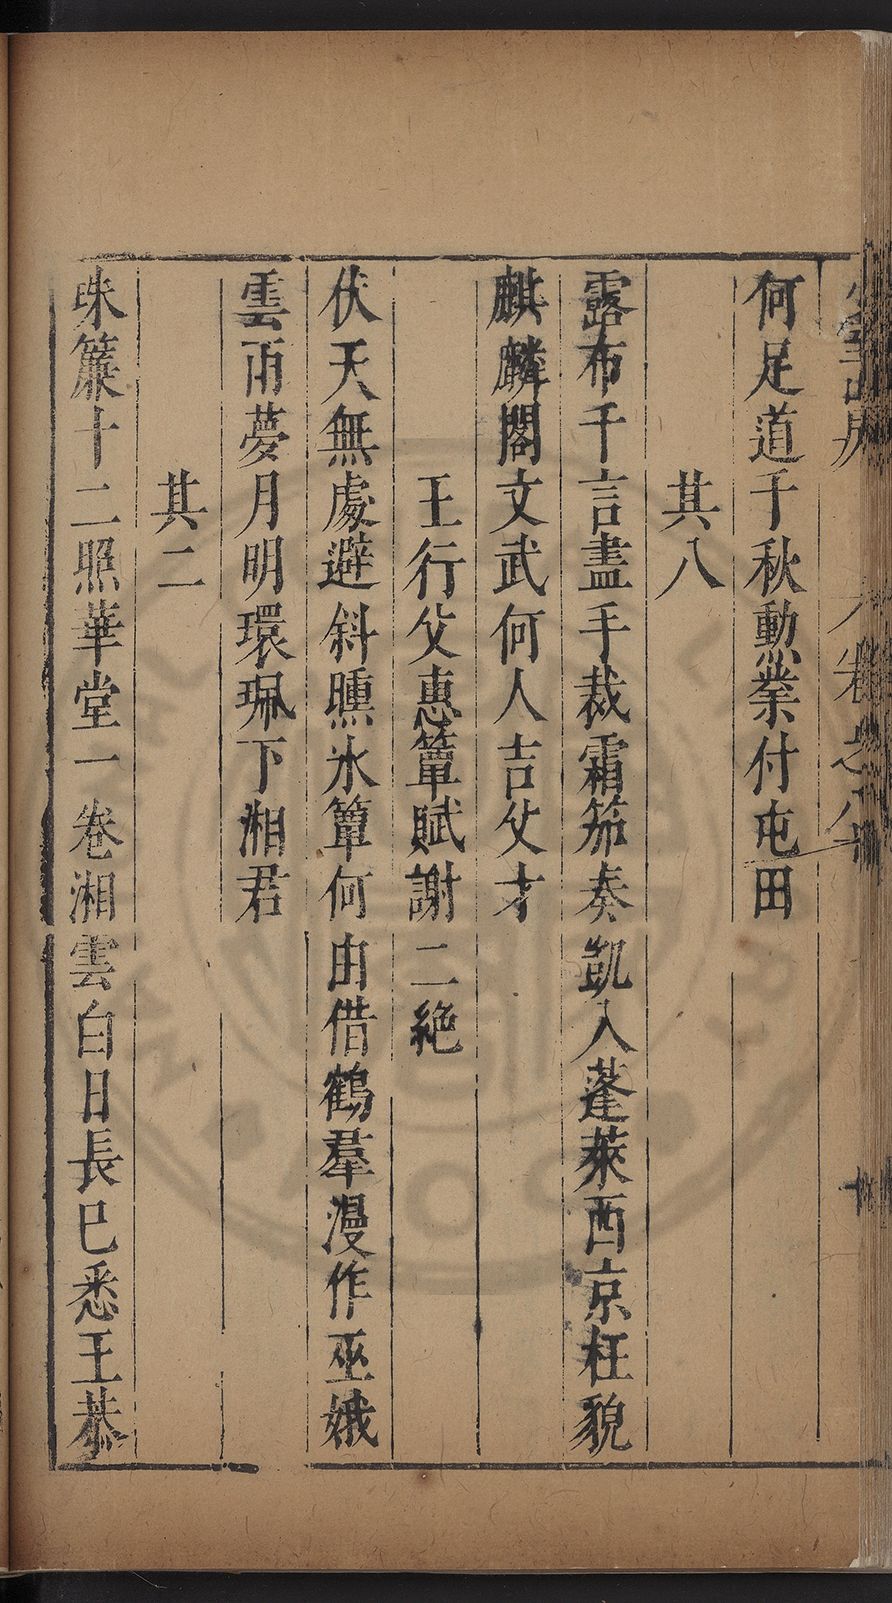 何足道千秋勳業付屯田
其八
露布千言盡手裁霜笳奏凱入蓬萊西京枉貌
麒麟閣文武何人吉父才
王行父惠簟賦謝二絶
伏天無處避斜曛氷簟何由借鶴羣漫作巫娥
雲雨夢月明環珮下湘君
其二
珠簾十二照華堂一卷湘雲白日長已悉王恭
卷之八